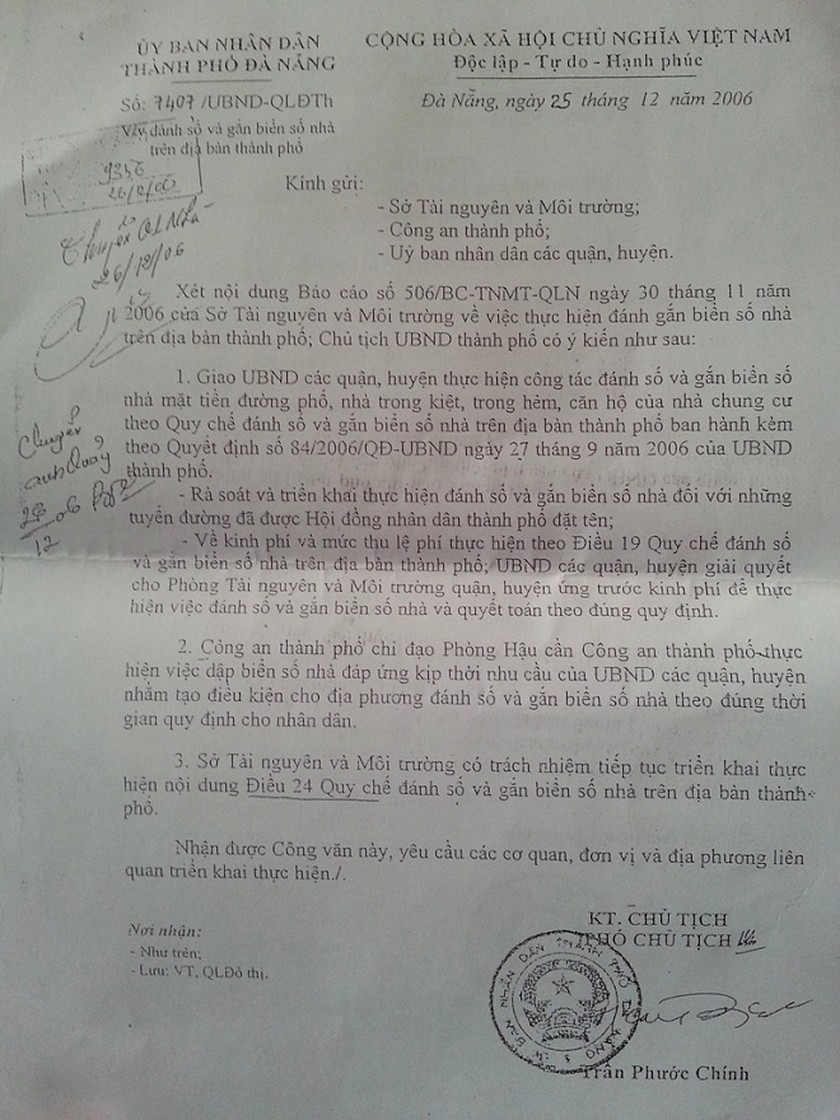 ỦY BAN NHÂN DÂN
THÀNH PHỐ ĐÀ NẴNG
CỘNG HÒA XÃ HỘI CHỦ NGHĨA VIỆT NAM
Độc lập - Tự do - Hạnh phúc
Số: 7407/UBND-QLĐTh
Đà Nẵng, ngày 25 tháng 12 năm 2006
V/v đánh số và gắn biển số nhà
trên địa bàn thành phố
9356
26/12/06
Chuyển QL Nhà
26/12/06
Kính gửi:
- Sở Tài nguyên và Môi trường;
- Công an thành phố;
- Uỷ ban nhân dân các quận, huyện.
Xét nội dung Báo cáo số 506/BC-TNMT-QLN ngày 30 tháng 11 năm
2006 của Sở Tài nguyên và Môi trường về việc thực hiện đánh gắn biển số nhà
trên địa bàn thành phố; Chủ tịch UBND thành phố có ý kiến như sau:
1. Giao UBND các quận, huyện thực hiện công tác đánh số và gắn biển số
nhà mặt tiền đường phố, nhà trong kiệt, trong hẻm, căn hộ của nhà chung cư
theo Quy chế đánh số và gắn biển số nhà trên địa bàn thành phố ban hành kèm
theo Quyết định số 84/2006/QĐ-UBND ngày 27 tháng 9 năm 2006 của UBND
thành phố.
Chuyển
anh Quảy
28/12 06
- Rà soát và triển khai thực hiện đánh số và gắn biển số nhà đối với những
tuyến đường đã được Hội đồng nhân dân thành phố đặt tên;
- Về kinh phí và mức thu lệ phí thực hiện theo Điều 19 Quy chế đánh số
và gắn biển số nhà trên địa bàn thành phố; UBND các quận, huyện giải quyết
cho Phòng Tài nguyên và Môi trường quận, huyện ứng trước kinh phí để thực
hiện việc đánh số và gắn biển số nhà và quyết toán theo đúng quy định.
2. Công an thành phố chỉ đạo Phòng Hậu cần Công an thành phố thực
hiện việc dập biển số nhà đáp ứng kịp thời nhu cầu của UBND các quận, huyện
nhằm tạo điều kiện cho địa phương đánh số và gắn biển số nhà theo đúng thời
gian quy định cho nhân dân.
3. Sở Tài nguyên và Môi trường có trách nhiệm tiếp tục triển khai thực
hiện nội dung Điều 24 Quy chế đánh số và gắn biển số nhà trên địa bàn thành
phố.
Nhận được Công văn này, yêu cầu các cơ quan, đơn vị và địa phương liên
quan triển khai thực hiện./.
Nơi nhận:
- Như trên;
- Lưu: VT, QLĐô thị.
KT. CHỦ TỊCH
PHÓ CHỦ TỊCH
ỦY BAN NHÂN DÂN THÀNH PHỐ ĐÀ NẴNG
Trần Phước Chính